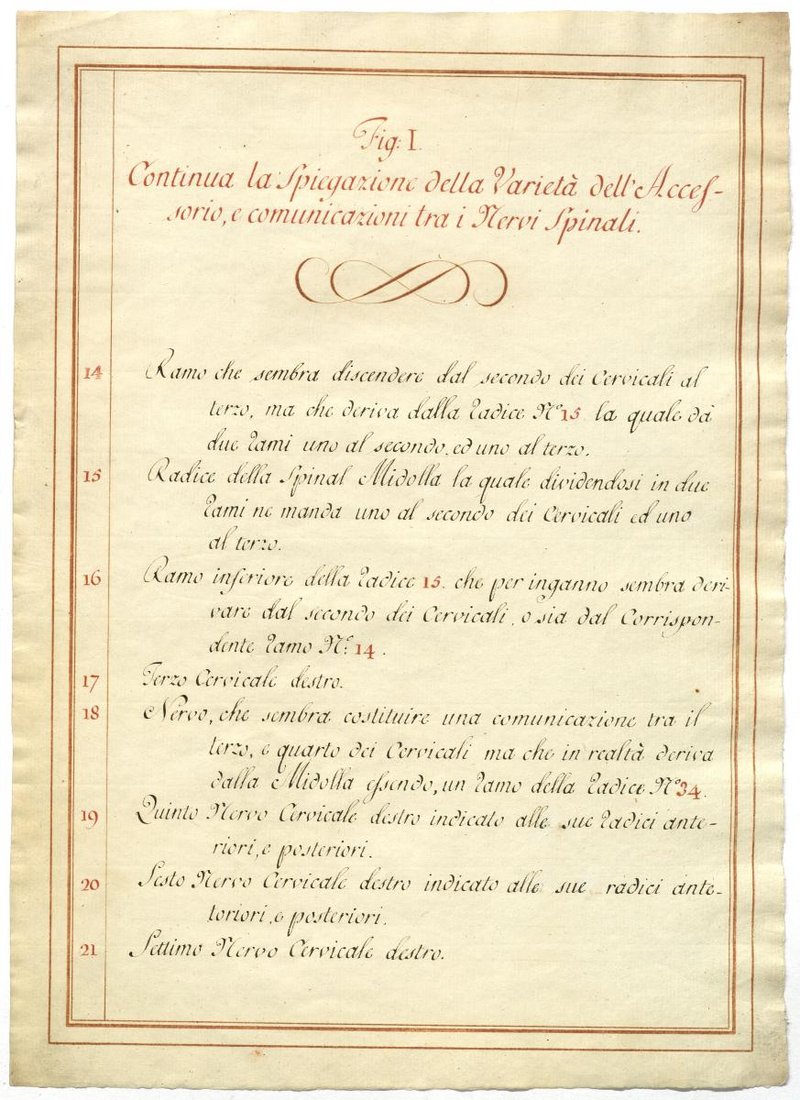 Fig: I.
Continua la Spiegazione della Varietà dell'Acceſ-
sorio, e comunicazioni tra i Nervi Spinali.
14 Ramo che sembra discendere dal secondo dei Cervicali al
terzo, ma che deriva dalla Radice Nº 15 la quale dà
due Rami uno al secondo, ed uno al terzo.
15 Radice della Spinal Midolla la quale dividendosi in due
Rami ne manda uno al secondo dei Cervicali ed uno
al terzo.
16 Ramo inferiore della Radice 15. che per inganno sembra deri-
vare dal secondo dei Cervicali, o sia dal Corrispon-
dente Ramo Nº: 14.
17 Terzo Cervicale destro.
18 Nervo, che sembra costituire una comunicazione tra il
terzo, e quarto dei Cervicali ma che in realtà deriva
dalla Midolla eſsendo, un Ramo della Radice Nº 34.
19 Quinto Nervo Cervicale destro indicato alle sue Radici ante-
riori, e posteriori.
20 Sesto Nervo Cervicale destro indicato alle sue radici ante-
toriori, e posteriori.
21 Settimo Nervo Cervicale destro.